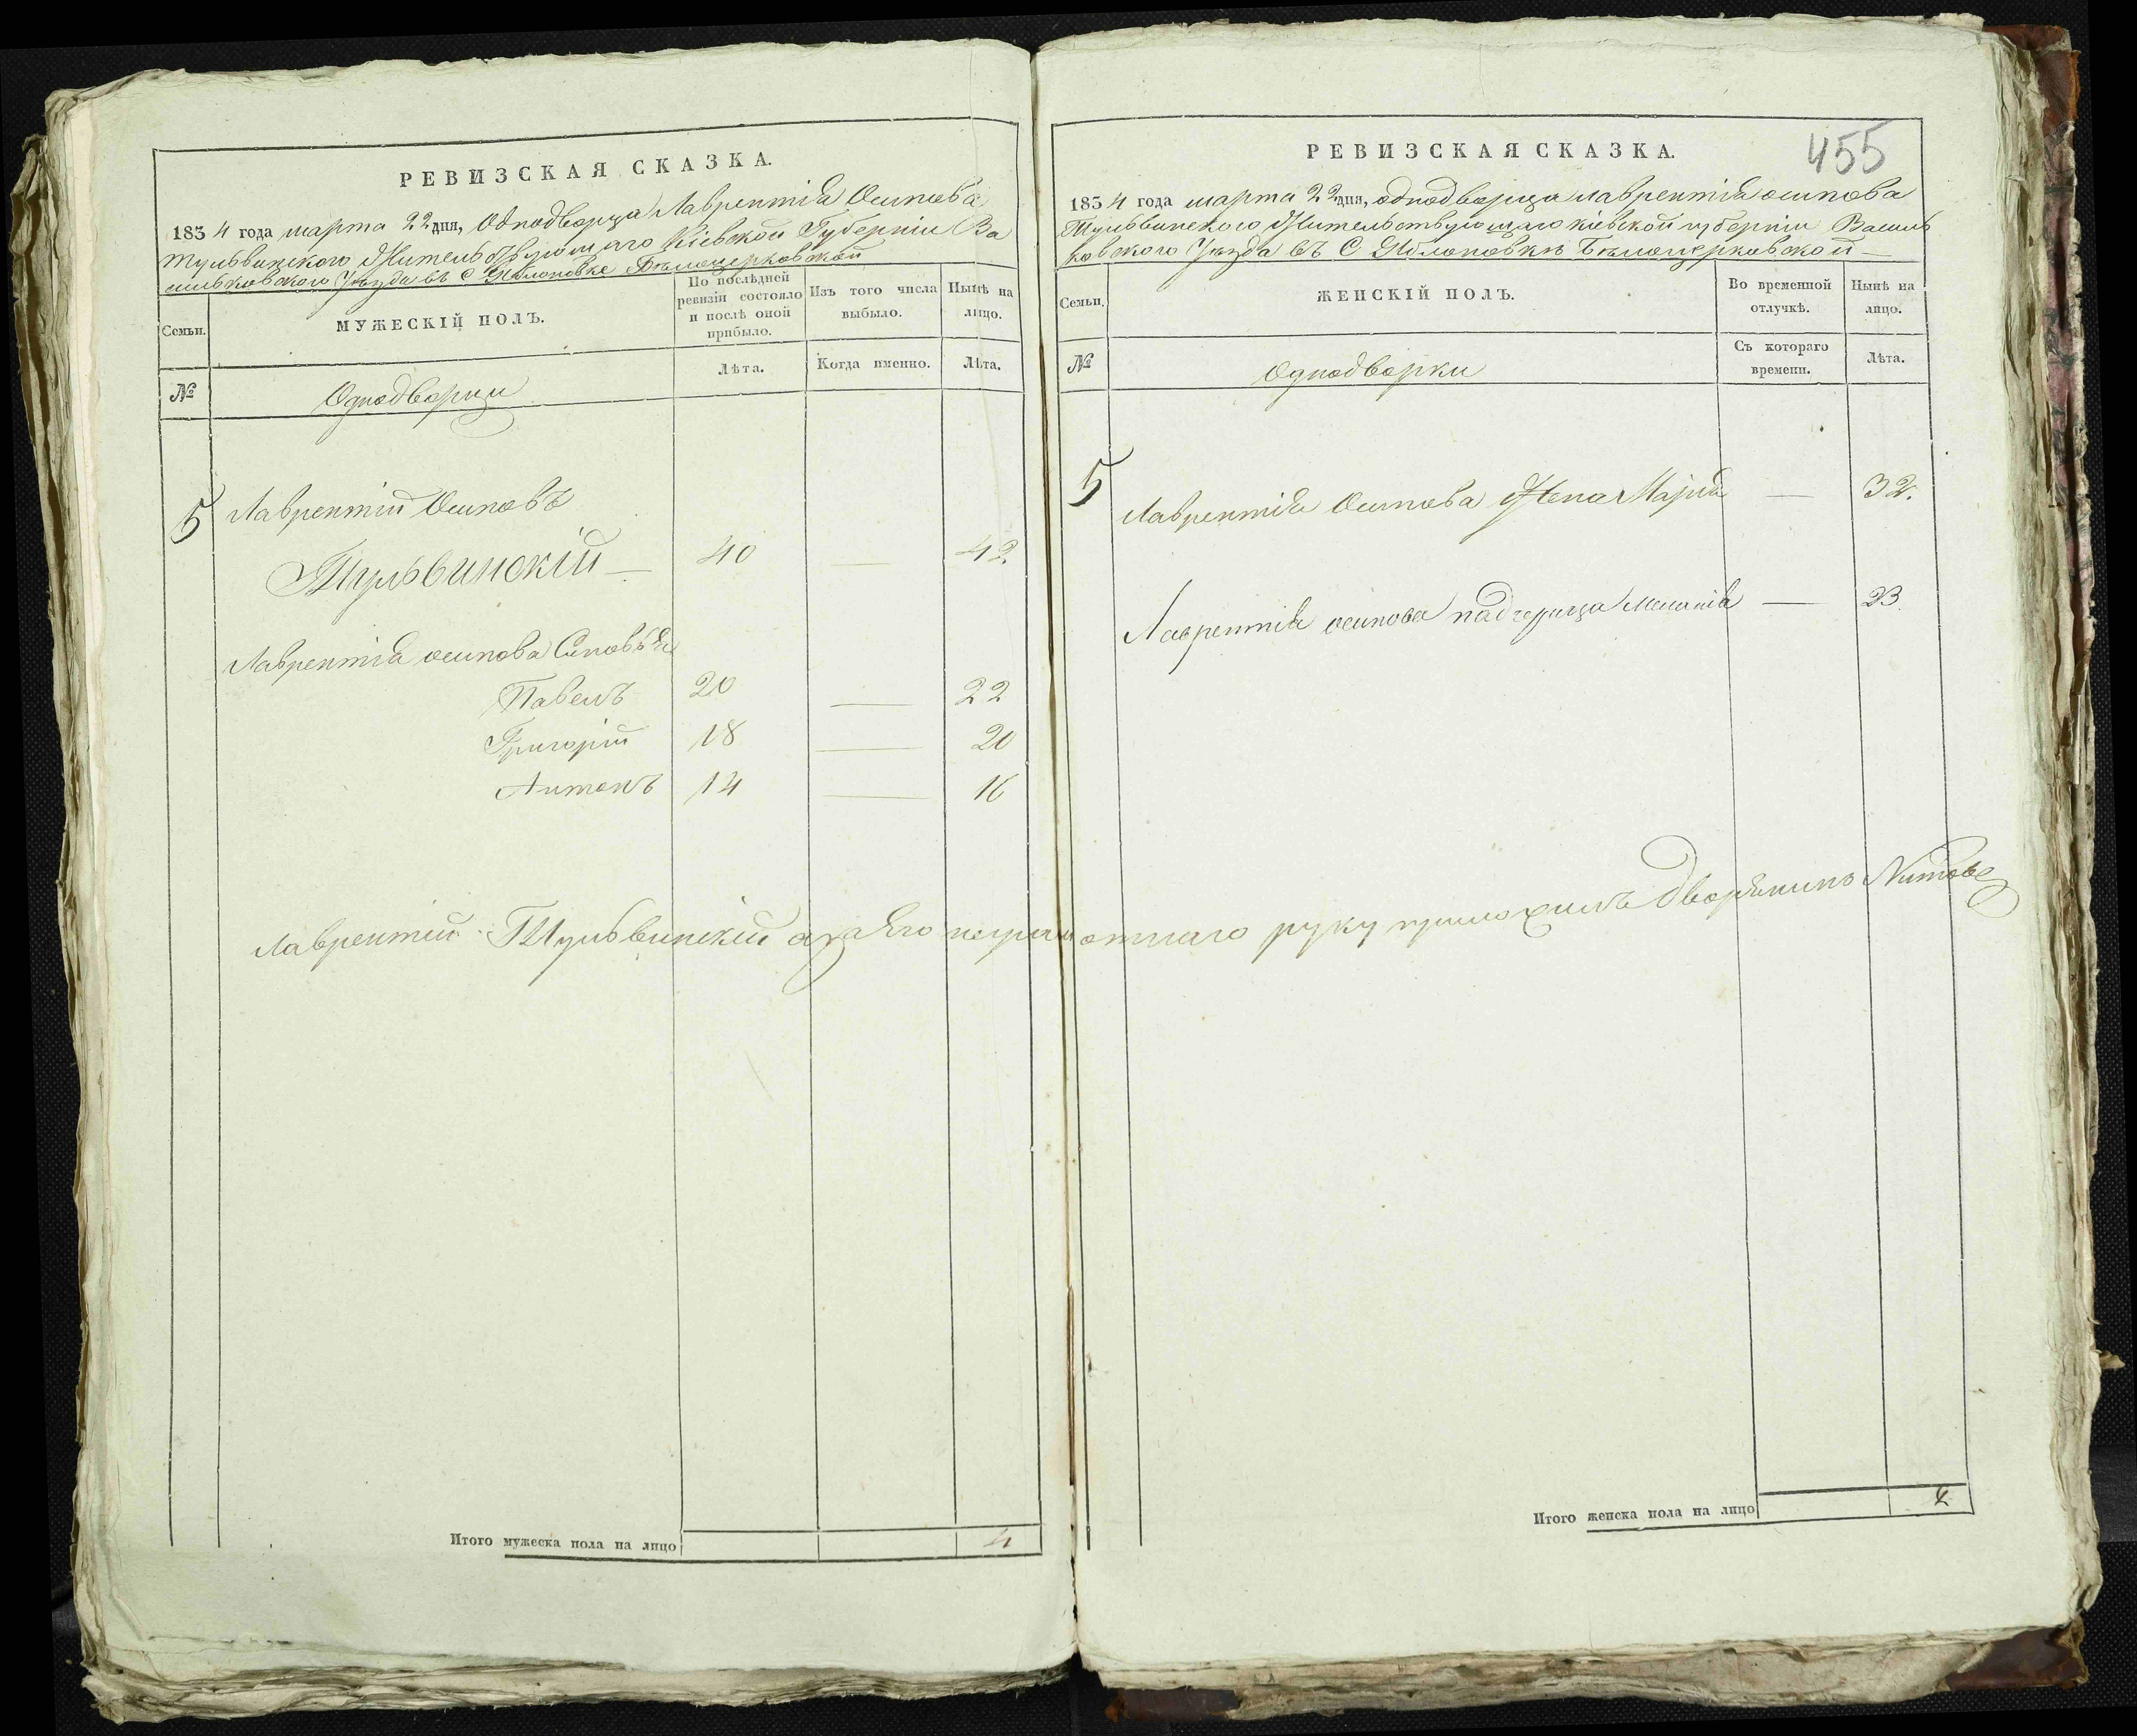 РЕВИЗСКАЯ СКАЗКА.
1834 года марта 22 дня, Однодворца Лаврентія Осипова
Тульвинского Жительствующаго Кіевской Губерніи Ва
сильковского Уезда въ С Яблоновке Белоцерковской
Семьи.
МУЖЕСКІЙ ПОЛЪ.
По послѣдней ревизіи состояло и послѣ оной прибыло.
Изъ того числа выбыло.
Нынѣ на лицо.
№
Однодворци
Лѣта.
Когда именно.
Лѣта.
5 Лаврентій Осиповъ
Тульвинскій — 40 — 42
Лаврентія осипова Синовья
Павелъ 20 — 22
Григорій 18 — 20
Антонъ 14 — 16
Итого мужеска пола на лицо 4
455
РЕВИЗСКАЯ СКАЗКА.
1834 года марта 22 дня, однодворца лаврентія осипова
Тульвинского Жительствующаго кіевской губерніи Василь
ковского Уезда въ С Яблоновкѣ Белоцерковской —
Семьи.
ЖЕНСКІЙ ПОЛЪ.
Во временной отлучкѣ.
Нынѣ на лицо.
№
Однодворки
Съ котораго времени.
Лѣта.
5 Лаврентія Осипова Жена Марія — 32.
Лаврентія осипова падчерица Меланія — 23.
Лаврентий Тульвинский а за Его неграмотнаго руку приложилъ дворянинъ
Итого женска пола на лицо 2